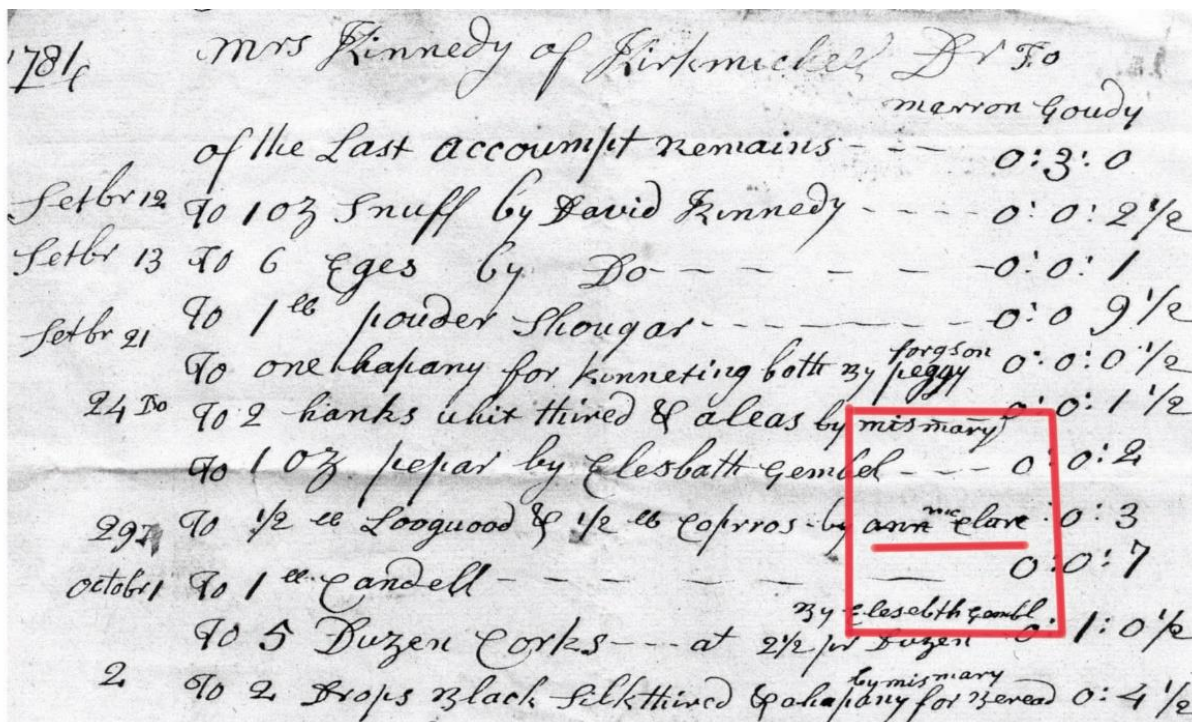 1781 Mrs Kinnedy of Kirkmichel Dr To
marron Goudy
of the Last accoumpt Remains - - - 0:3:0
Setbr 12 To 1 oz Snuff by David Kinnedy - - - - 0:0:2 1/2
Setbr 13 To 6 Eges by Do - - - - - - 0:0:1
To 1 lb pouder Shougar - - - - - - 0:0 9 1/2
Setbr 21
To one hapany for kinneting both By forgson peggy 0:0:0 1/2
24 Do To 2 hanks whit thired & aleas by mis mary 0:0:1 1/2
To 1 oz pepar by Elesbath Gembel - - - 0:0:2
29 To 1/2 lb Looguood & 1/2 lb Coprros - by ann mc Clure 0:0:3
October 1 To 1 lb Candell - - - - - - 0:0:7
By Elesebth Gembl
To 5 Duzen Corks - - - at 2 1/2 pr Duzen 0:1:0 1/2
by mis mary
2 To 2 Drops Black Silk thired & ahapany for Beread 0:4 1/2